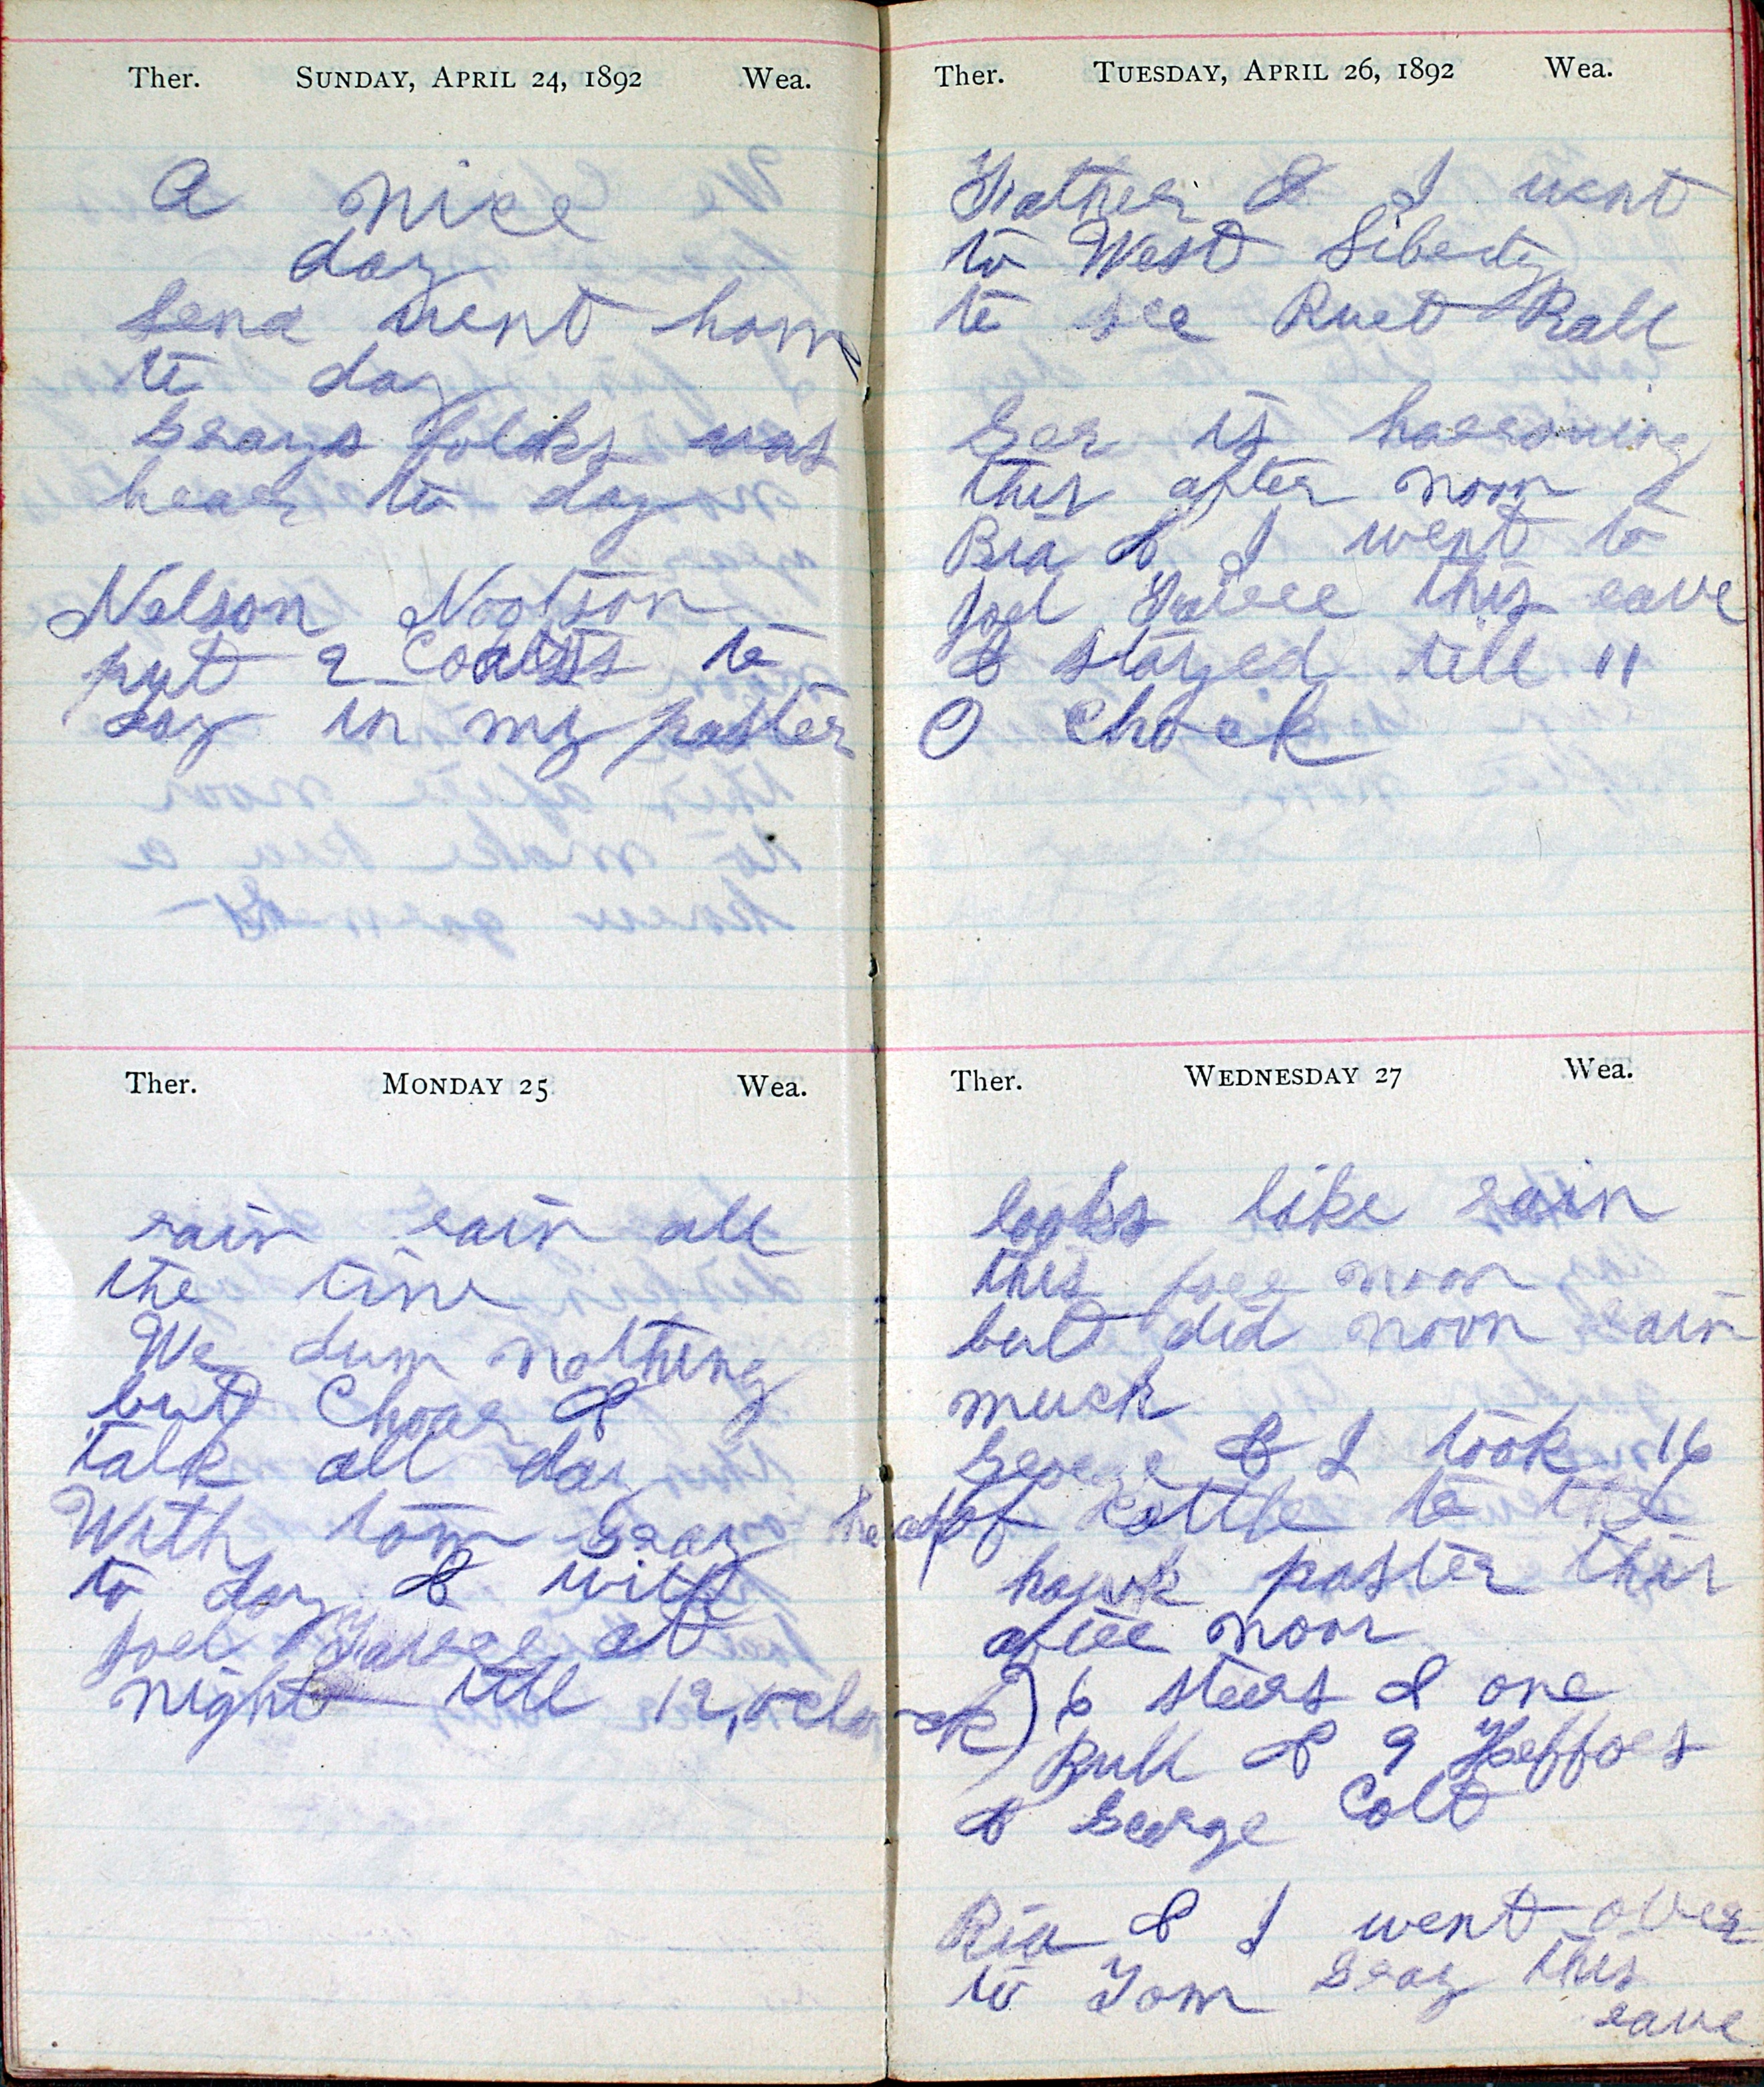 Ther. SUNDAY, APRIL 24, 1892 Wea.
A nice
day
Lena went hom
to day
Grays folcks was
hear to day
Nelson Nootson
put 2 Coalts to
day in my paster
Ther. MONDAY 25 Wea.
rain rain all
the time
We dum nothing
but Choar &
talk all day
With tom Gray
to day & with
joel at
night till 12, oclo
ck)
Ther. TUESDAY, APRIL 26, 1892 Wea.
Father & I went
to West Liberty
to see Ruet Ball
Ger is harrowing
this after noon
Ria & I went to
joel this eave
& stayed till 11
O Clock
Ther. WEDNESDAY 27 Wea.
looks like rain
this fore noon
but did noon rain
much
George & I took 16
head of Cattle to the
hawk paster this
after noon
6 steers & one
Bull & 9 Heffors
& George Colt
Ria & I went over
to Tom Gray this
eave